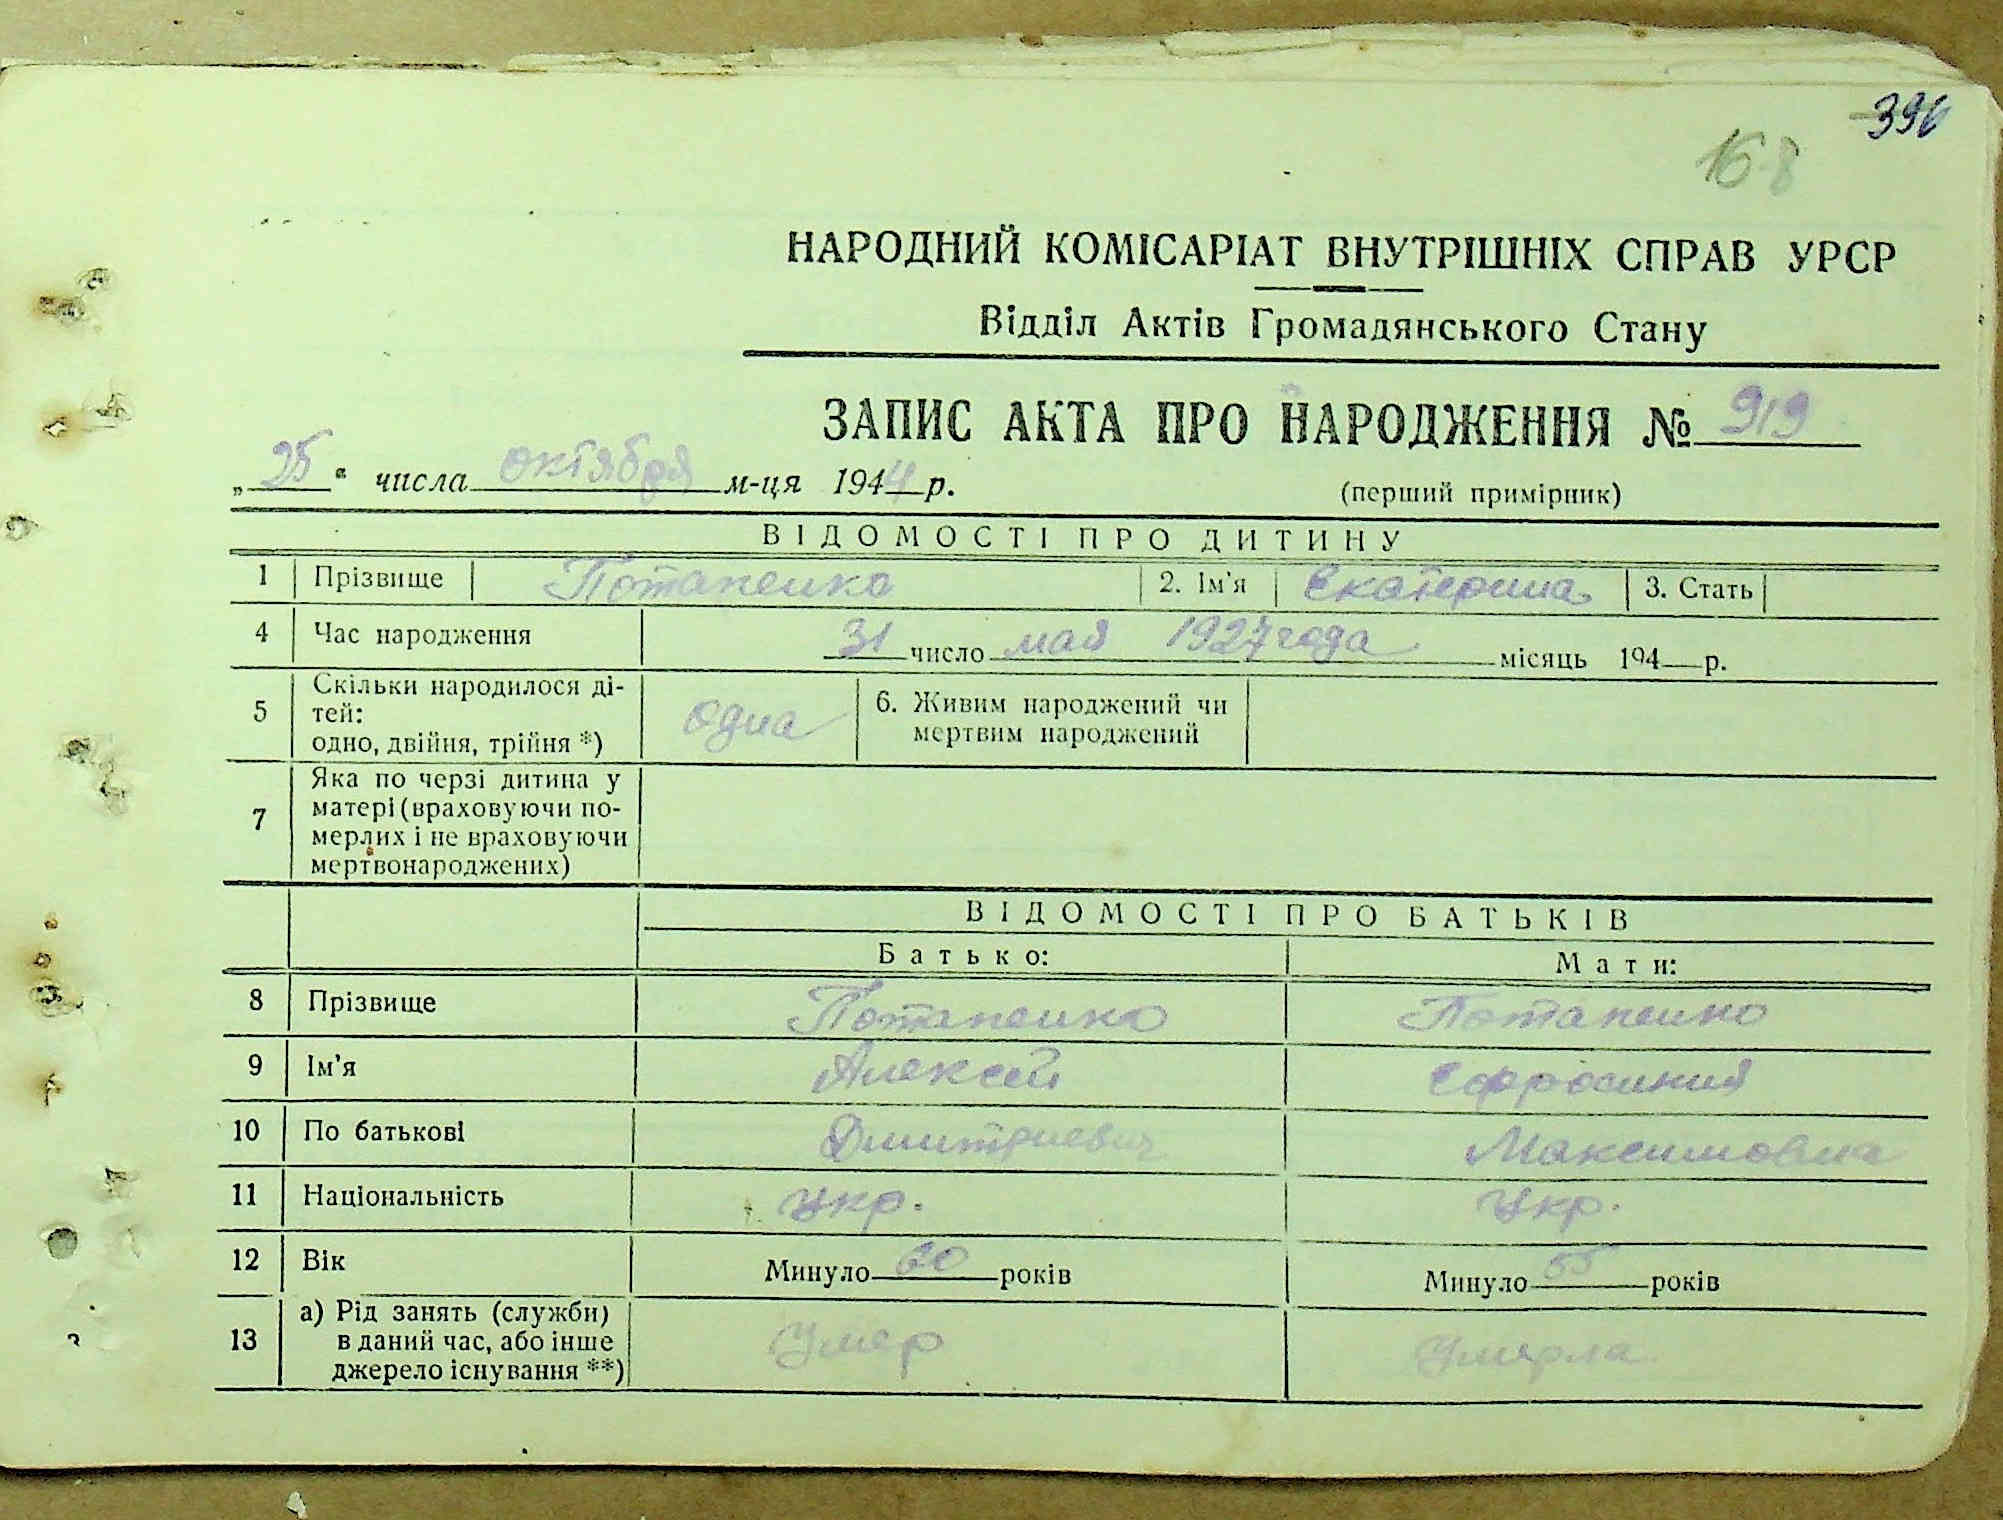 396
168
НАРОДНИЙ КОМІСАРІАТ ВНУТРІШНІХ СПРАВ УРСР
Відділ Актів Громадянського Стану
ЗАПИС АКТА ПРО НАРОДЖЕННЯ № 919
„25“ числа октября м-ця 1944 р. (перший примірник)
ВІДОМОСТІ ПРО ДИТИНУ
1 Прізвище Потапенко 2. Ім'я Екатерина 3. Стать
4 Час народження 31 число мая 1927 года місяць 194 р.
5 Скільки народилося ді-
тей:
одно, двійня, трійня *) одна 6. Живим народжений чи
мертвим народжений
7 Яка по черзі дитина у
матері (враховуючи по-
мерлих і не враховуючи
мертвонароджених)
ВІДОМОСТІ ПРО БАТЬКІВ
Батько: Мати:
8 Прізвище Потапенко Потапенко
9 Ім'я Алексей Ефросиния
10 По батькові Дмитриевич Максимовна
11 Національність укр. укр.
12 Вік Минуло 60 років Минуло 55 років
13 а) Рід занять (служби)
в даний час, або інше
джерело існування **) Умер Умерла